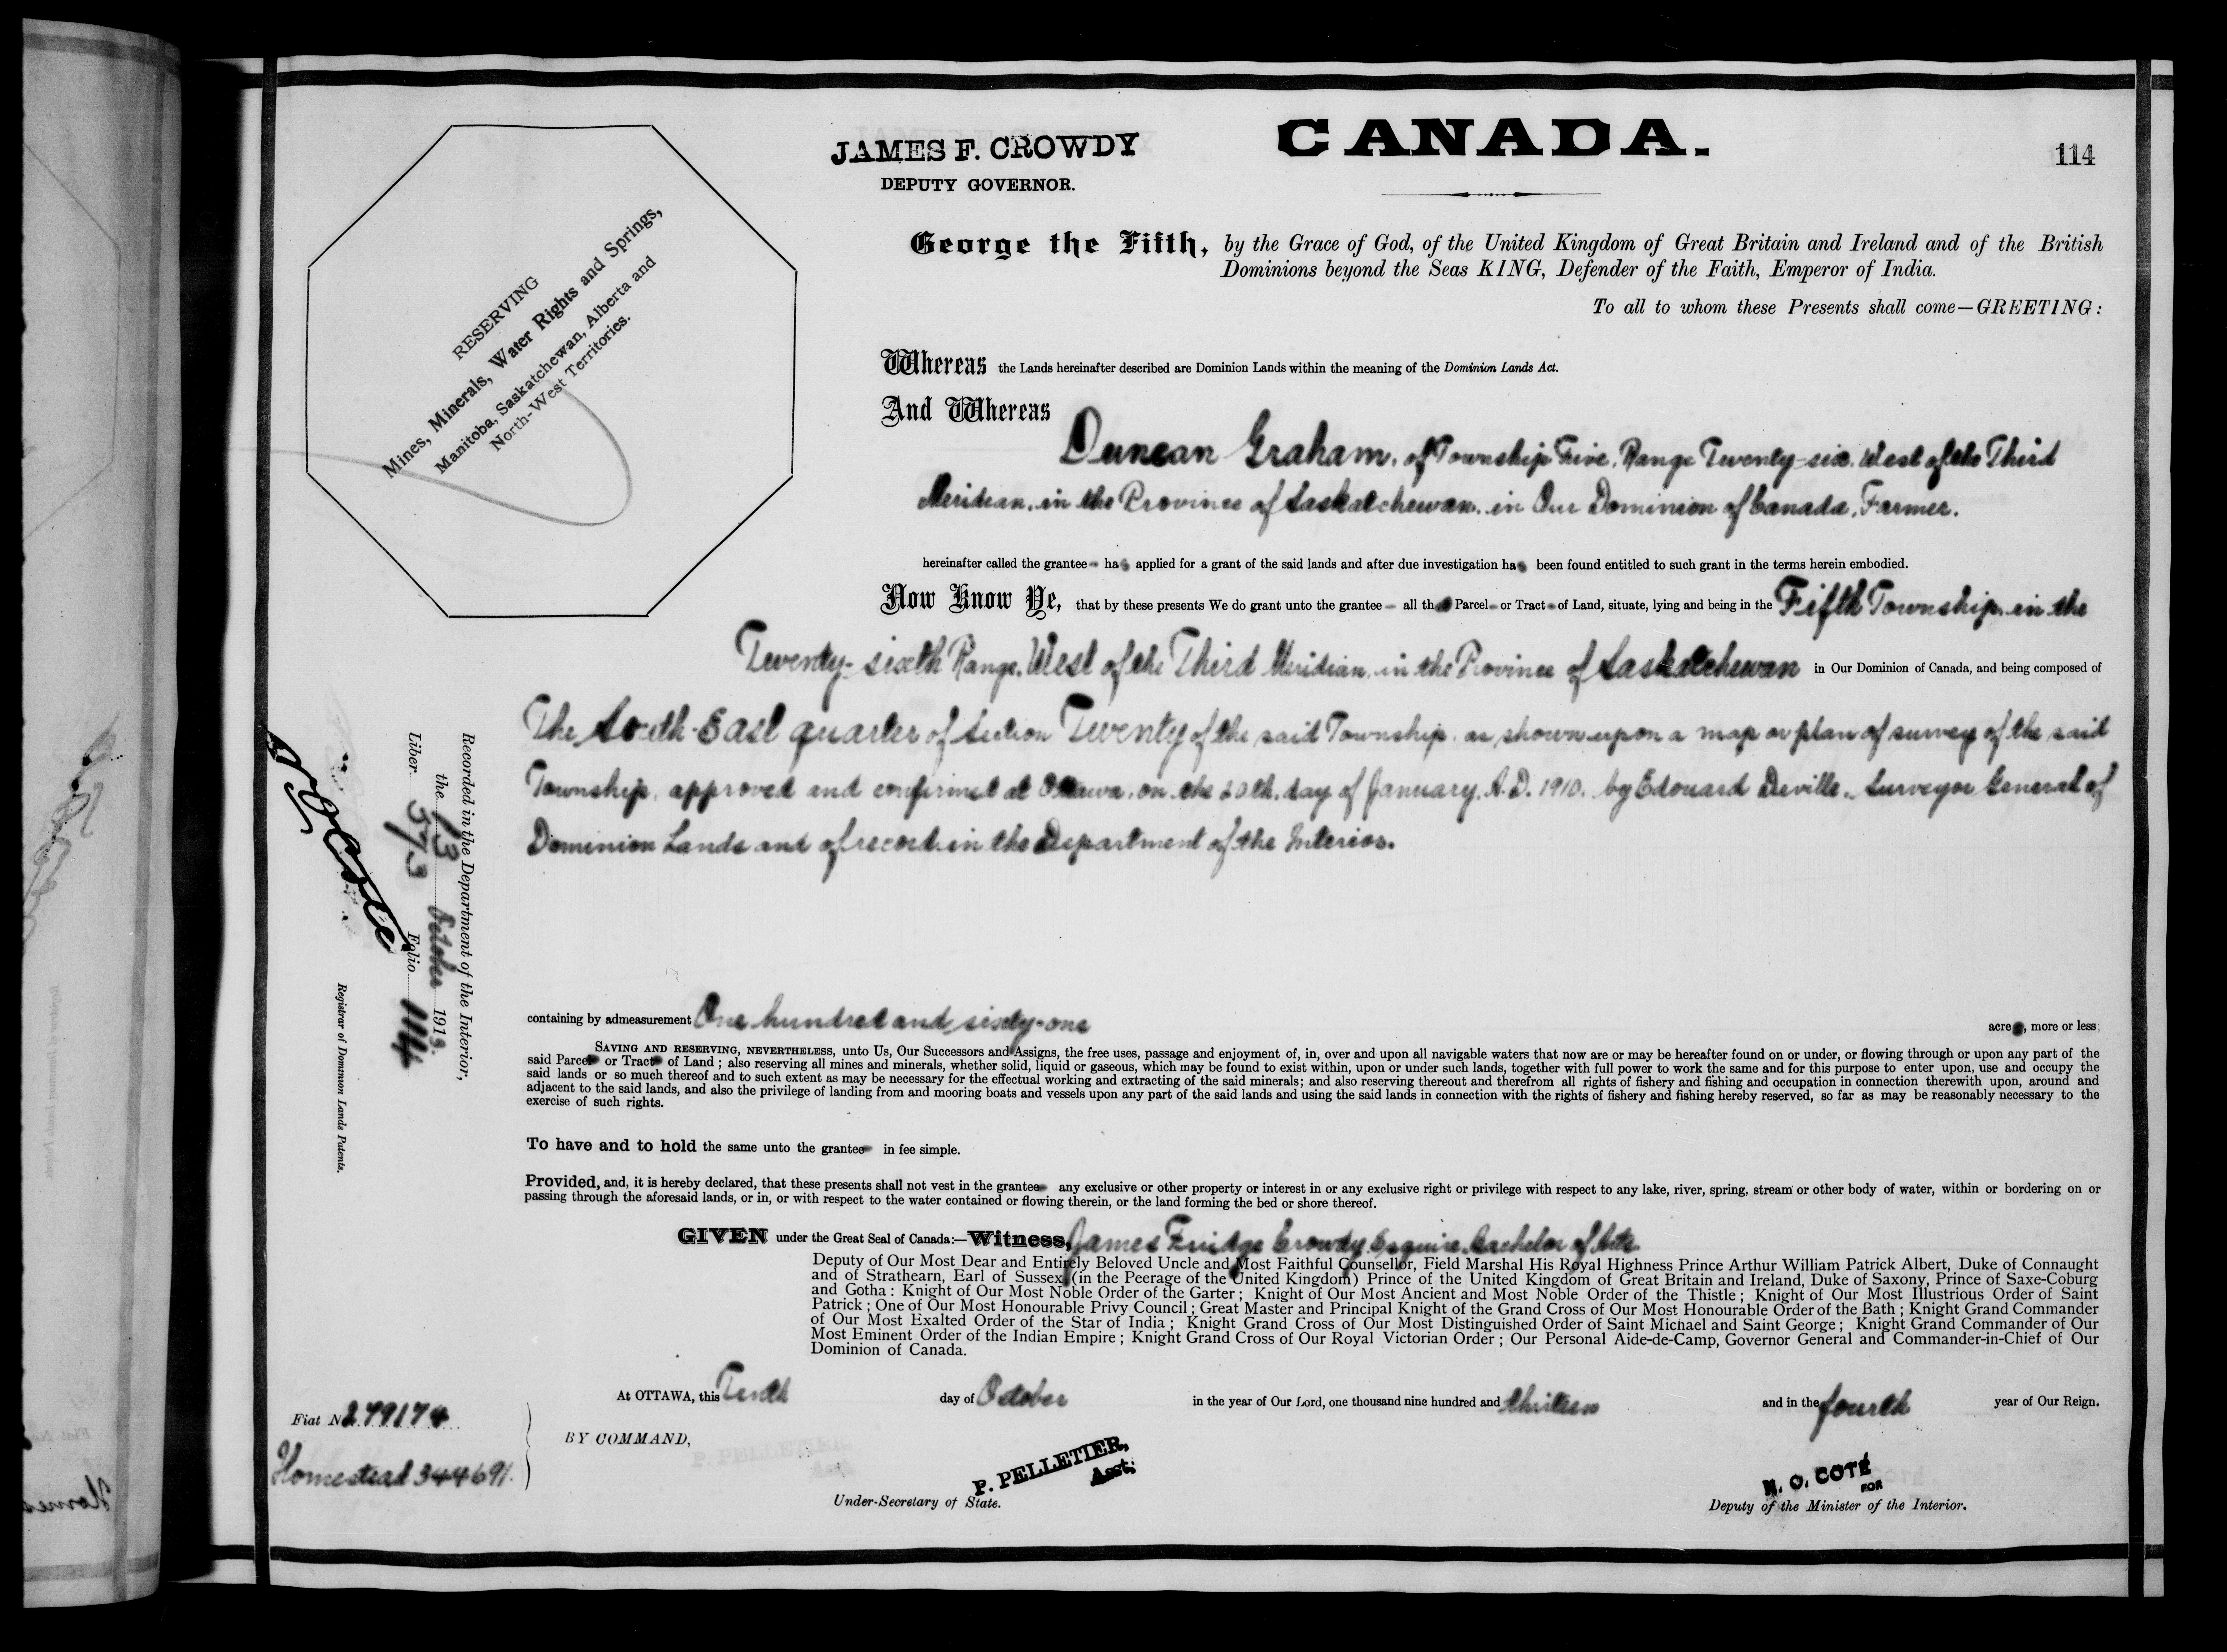 JAMES F. CROWDY
DEPUTY GOVERNOR.
CANADA.
114
RESERVING
Mines, Minerals, Water Rights and Springs,
Manitoba, Saskatchewan, Alberta and
North-West Territories.
George the Fifth, by the Grace of God, of the United Kingdom of Great Britain and Ireland and of the British
Dominions beyond the Seas KING, Defender of the Faith, Emperor of India.
To all to whom these Presents shall come—GREETING:
Whereas the Lands hereinafter described are Dominion Lands within the meaning of the Dominion Lands Act.
And Whereas
Duncan Graham, of Township Five, Range Twenty-six, West of the Third
Meridian, in the Province of Saskatchewan, in Our Dominion of Canada, Farmer.
hereinafter called the grantee has applied for a grant of the said lands and after due investigation has been found entitled to such grant in the terms herein embodied.
Now Know Ye, that by these presents We do grant unto the grantee all that Parcel or Tract of Land, situate, lying and being in the Fifth Township, in the
Twenty-sixth Range, West of the Third Meridian, in the Province of Saskatchewan in Our Dominion of Canada, and being composed of
The South-East quarter of Section Twenty of the said Township, as shown upon a map or plan of survey of the said
Township, approved and confirmed at Ottawa, on the 20th. day of January, A.D. 1910, by Edouard Deville, Surveyor General of
Dominion Lands and of record in the Department of the Interior.
containing by admeasurement One hundred and sixty-one acres, more or less;
SAVING AND RESERVING, NEVERTHELESS, unto Us, Our Successors and Assigns, the free uses, passage and enjoyment of, in, over and upon all navigable waters that now are or may be hereafter found on or under, or flowing through or upon any part of the
said Parcel or Tract of Land; also reserving all mines and minerals, whether solid, liquid or gaseous, which may be found to exist within, upon or under such lands, together with full power to work the same and for this purpose to enter upon, use and occupy the
said lands or so much thereof and to such extent as may be necessary for the effectual working and extracting of the said minerals; and also reserving thereout and therefrom all rights of fishery and fishing and occupation in connection therewith upon, around and
adjacent to the said lands, and also the privilege of landing from and mooring boats and vessels upon any part of the said lands and using the said lands in connection with the rights of fishery and fishing hereby reserved, so far as may be reasonably necessary to the
exercise of such rights.
To have and to hold the same unto the grantee in fee simple.
Provided, and, it is hereby declared, that these presents shall not vest in the grantee any exclusive or other property or interest in or any exclusive right or privilege with respect to any lake, river, spring, stream or other body of water, within or bordering on or
passing through the aforesaid lands, or in, or with respect to the water contained or flowing therein, or the land forming the bed or shore thereof.
GIVEN under the Great Seal of Canada:—Witness, James Fuidge Crowdy, Esquire, Bachelor of Arts.
Deputy of Our Most Dear and Entirely Beloved Uncle and Most Faithful Counsellor, Field Marshal His Royal Highness Prince Arthur William Patrick Albert, Duke of Connaught
and of Strathearn, Earl of Sussex (in the Peerage of the United Kingdom) Prince of the United Kingdom of Great Britain and Ireland, Duke of Saxony, Prince of Saxe-Coburg
and Gotha: Knight of Our Most Noble Order of the Garter; Knight of Our Most Ancient and Most Noble Order of the Thistle; Knight of Our Most Illustrious Order of Saint
Patrick; One of Our Most Honourable Privy Council; Great Master and Principal Knight of the Grand Cross of Our Most Honourable Order of the Bath; Knight Grand Commander
of Our Most Exalted Order of the Star of India; Knight Grand Cross of Our Most Distinguished Order of Saint Michael and Saint George; Knight Grand Commander of Our
Most Eminent Order of the Indian Empire; Knight Grand Cross of Our Royal Victorian Order; Our Personal Aide-de-Camp, Governor General and Commander-in-Chief of Our
Dominion of Canada.
At OTTAWA, this Tenth day of October in the year of Our Lord, one thousand nine hundred and thirteen and in the fourth year of Our Reign.
BY COMMAND,
P. PELLETIER,
Asst.
Under-Secretary of State.
N. O. COTE
FOR
Deputy of the Minister of the Interior.
Recorded in the Department of the Interior,
the 13 October 1913.
Liber 573 Folio 114
N O Cote
Registrar of Dominion Lands Patents.
Fiat No 279174
Homestead 344691.